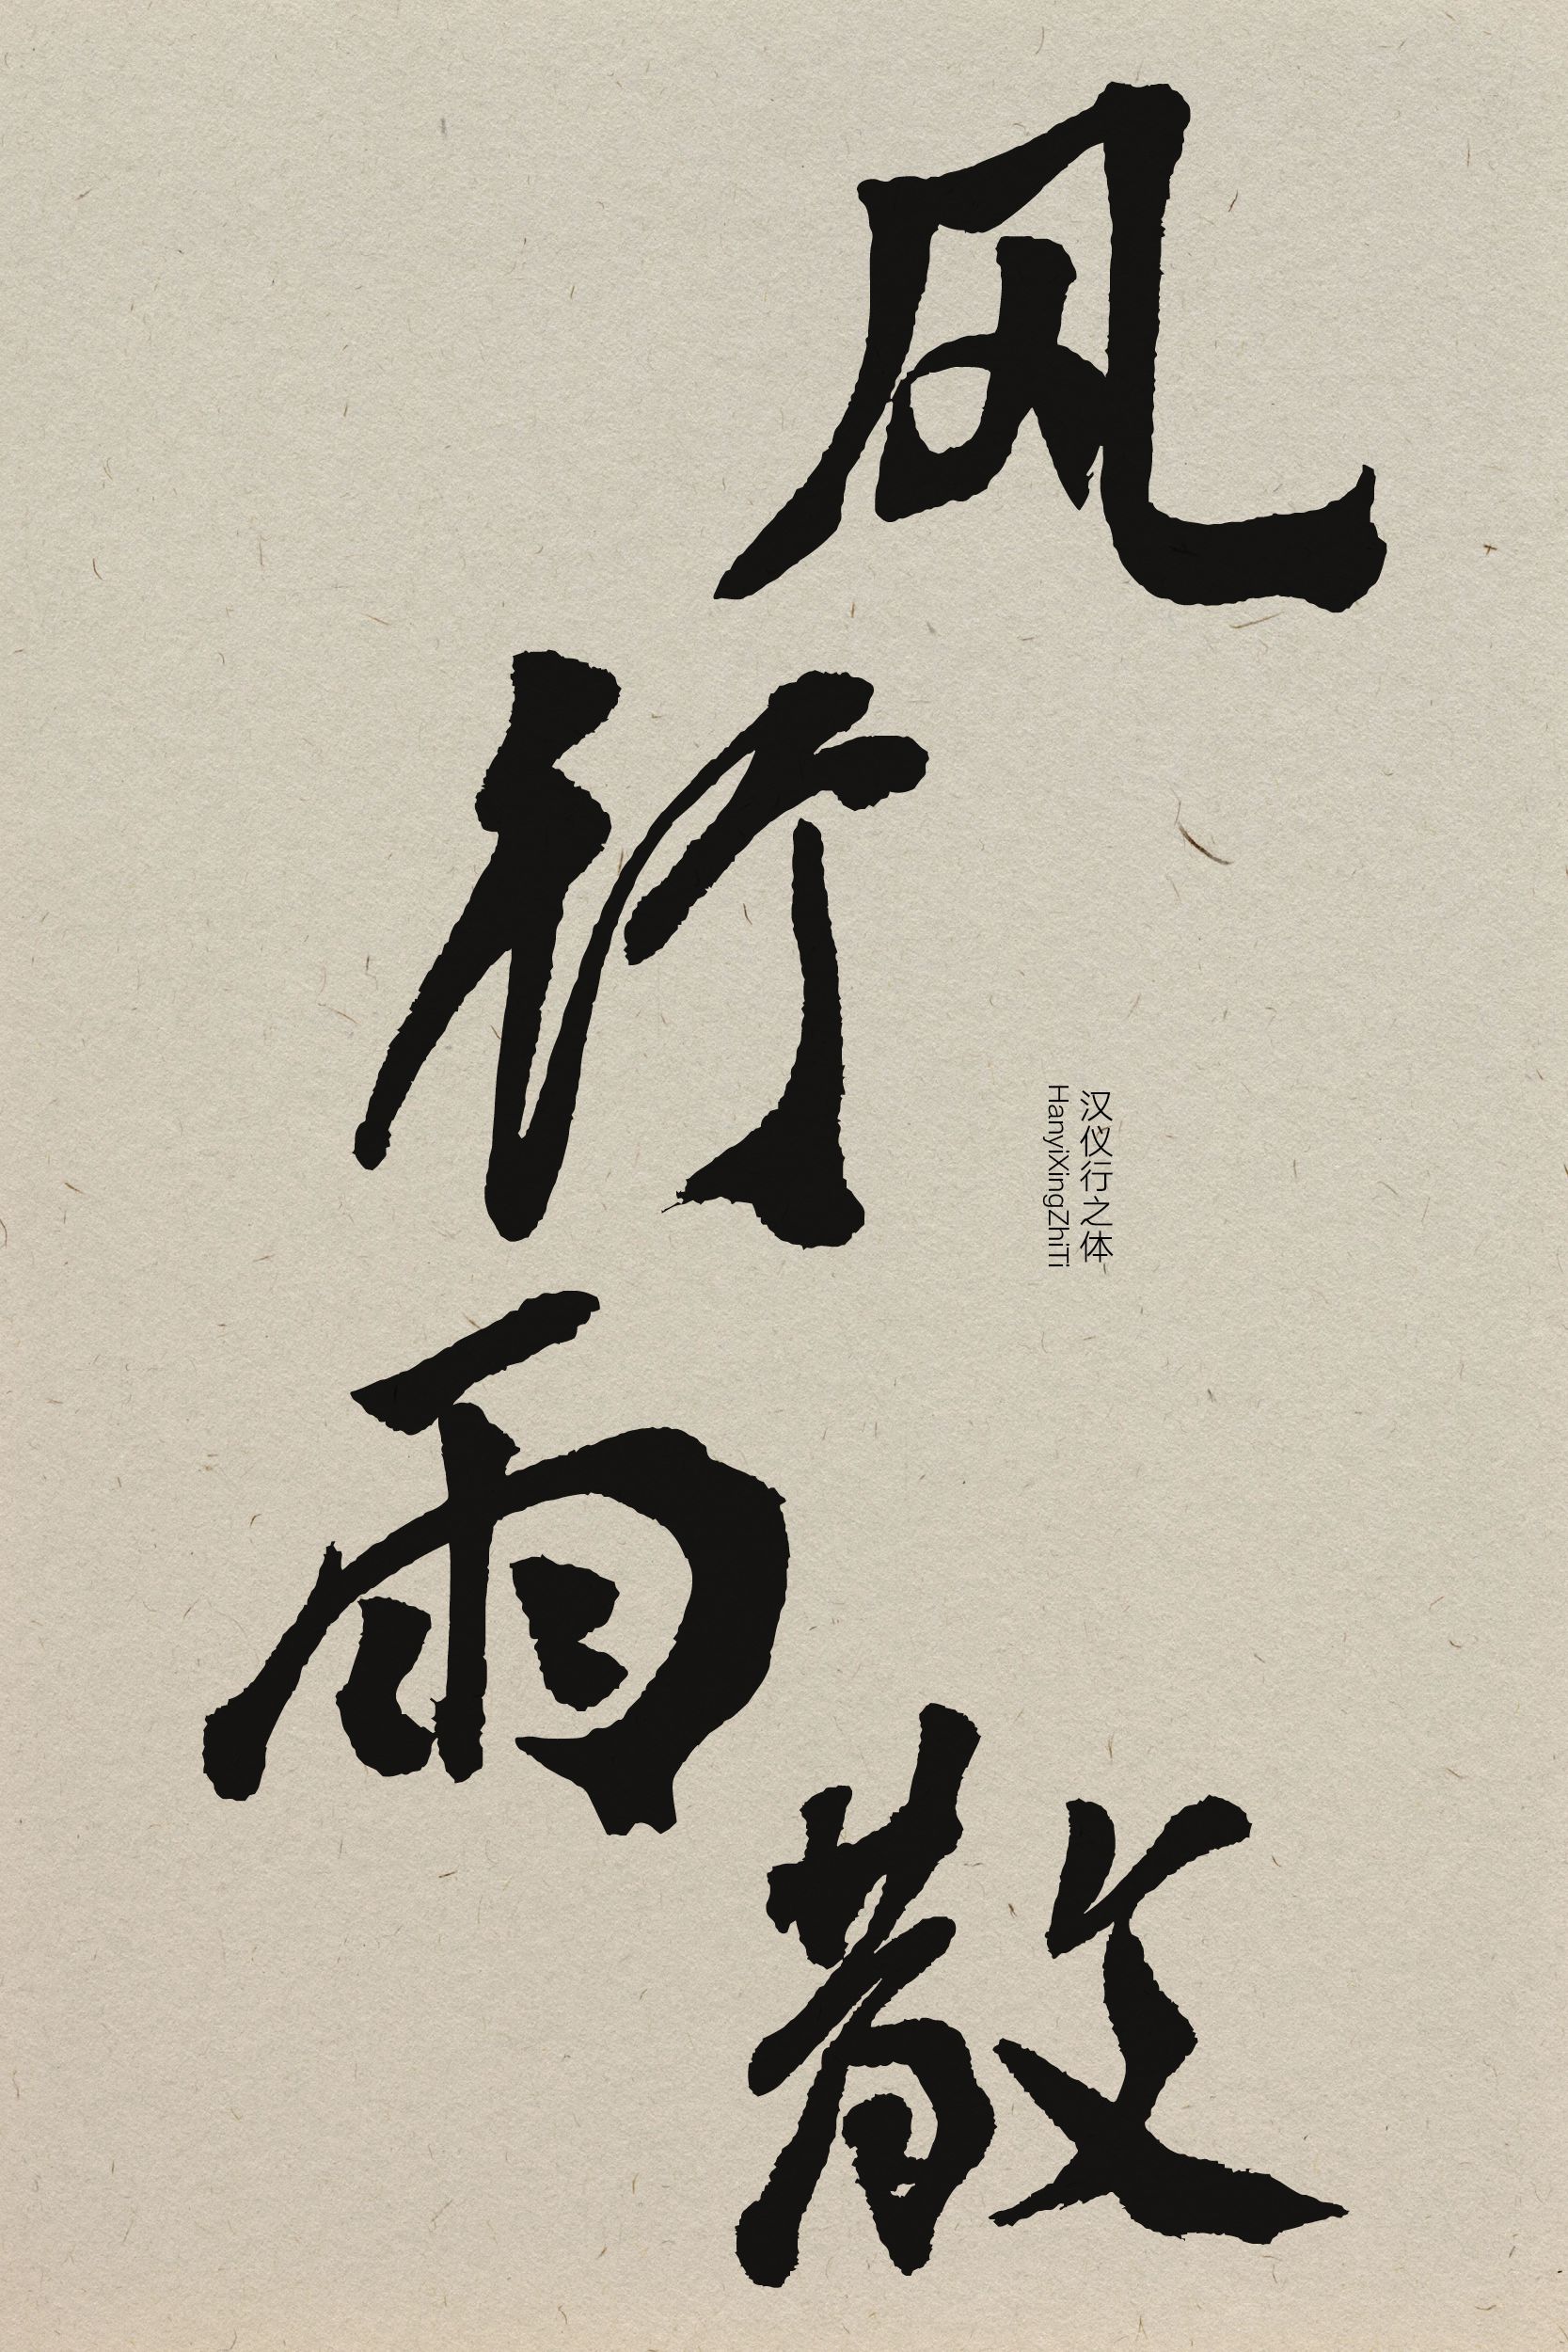 风行雨散
汉仪行之体
HanyiXingZhiTi